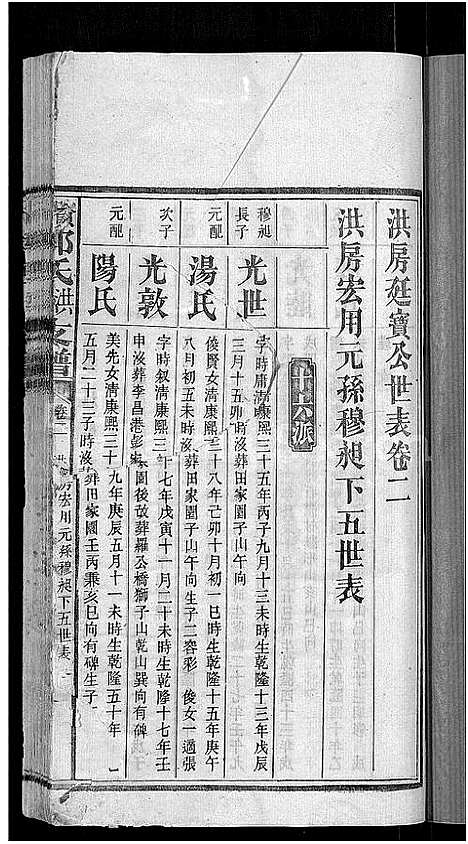 洪房廷寶公世表卷二
洪房宏用元孫穆昶下五世表
十六派
穆昶長子
光世
字時庸清康熙三十五年丙子九月十三未時生乾隆十三年戊辰
三月十五卯時沒葬田家園子山午向
元配
湯氏
俊賢女清康熙三十八年己卯十月初一巳時生乾隆十五年庚午
八月初五未時沒葬田家園子山午向生子二容彩 俊女一適張
次子
光敦
字時叙清康熙三十七年戊寅十一月二十未時生乾隆十七年壬
申沒葬李昌港彭家園後改葬羅公橋獅子山乾山巽向有碑
元配
陽氏
美先女清康熙三十九年庚辰五月十一未時生乾隆五十年
五月二十三子時沒葬田家園壬丙兼亥巳向有碑生子
鄧氏洪 支譜
卷二
洪房宏用元孫穆昶下五世表
一